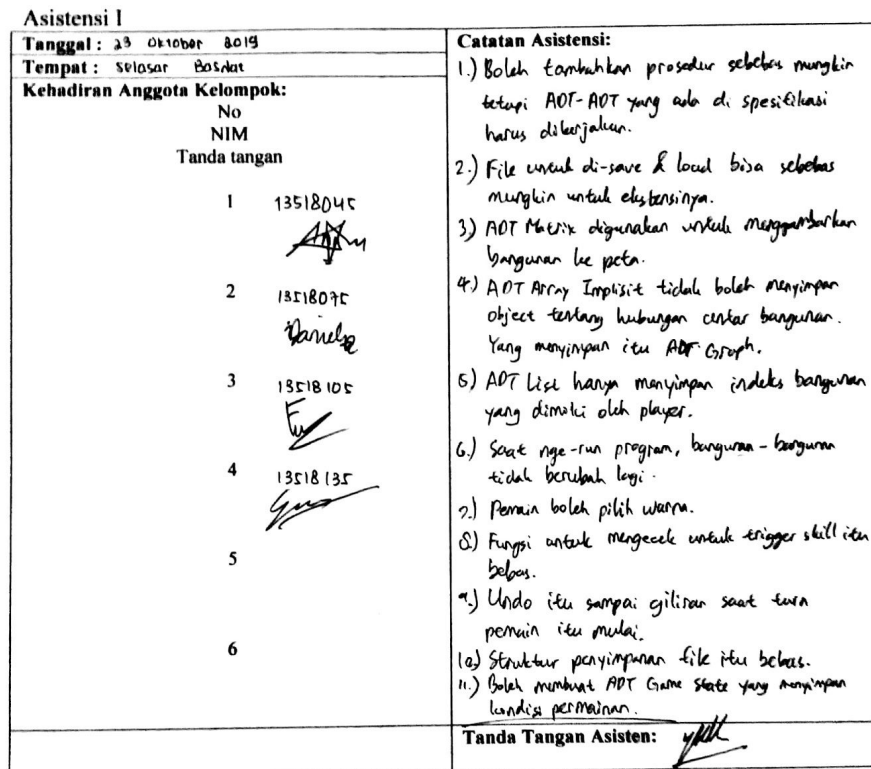 Asistensi I
Tanggal : 23 Oktober 2019
Tempat : Selasar Basdat
Kehadiran Anggota Kelompok:
No
NIM
Tanda tangan
1 13518045
2 13518075
Daniel
3 13518105
4 13518135
5
6
Catatan Asistensi:
1.) Boleh tambahkan prosedur sebebas mungkin
tetapi ADT-ADT yang ada di spesifikasi
harus dikerjakan.
2.) File untuk di-save & load bisa sebebas
mungkin untuk ekstensinya.
3.) ADT Matrix digunakan untuk menggambarkan
bangunan ke peta.
4.) ADT Array Implisit tidak boleh menyimpan
object tentang hubungan antar bangunan.
Yang menyimpan itu ADT Graph.
5.) ADT List hanya menyimpan indeks bangunan
yang dimiliki oleh player.
6.) Saat nge-run program, bangunan-bangunan
tidak berubah lagi.
7.) Pemain boleh pilih warna.
8.) Fungsi untuk mengecek untuk trigger skill itu
bebas.
9.) Undo itu sampai giliran saat turn
pemain itu mulai.
10.) Struktur penyimpanan file itu bebas.
11.) Boleh membuat ADT Game State yang menyimpan
kondisi permainan.
Tanda Tangan Asisten: